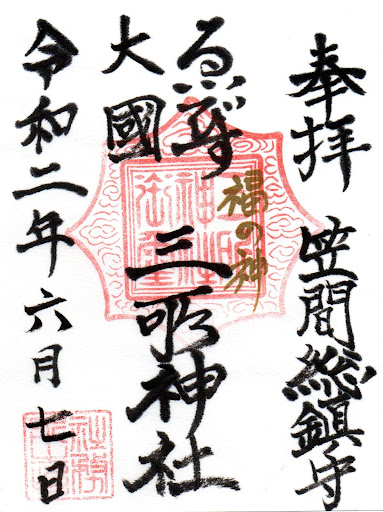 奉拝 笠間総鎮守
福の神
ゑび寿
大國
三所神社
令和二年六月七日